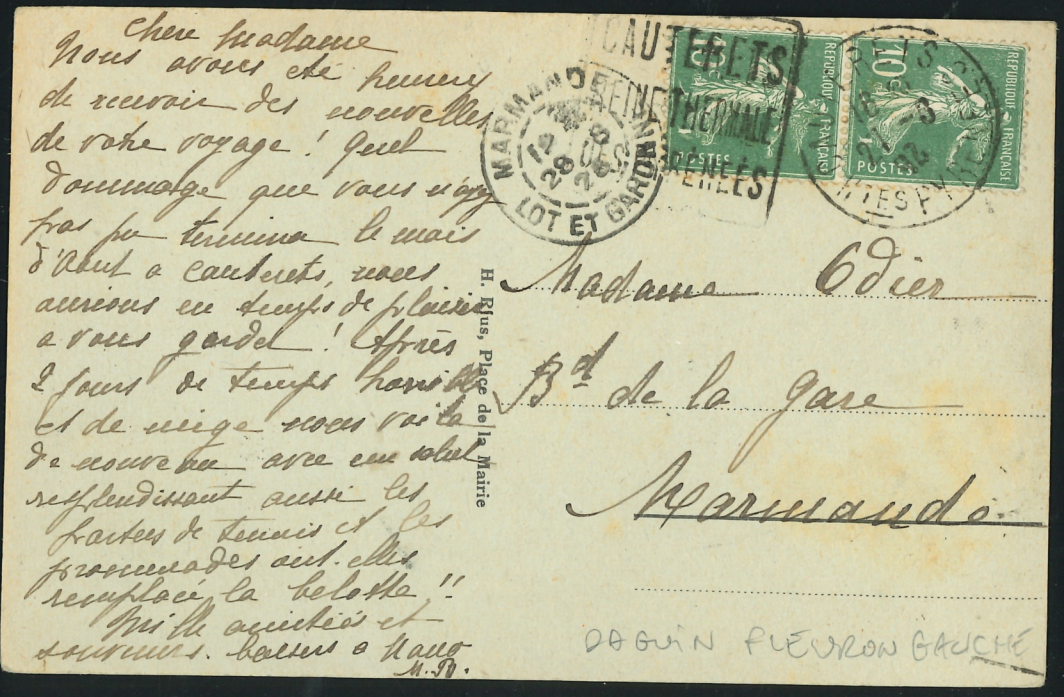 Chère Madame
Nous avons été heureux
de recevoir des nouvelles
de votre voyage ! Quel
dommage que vous n'ayez
pas pu terminer le mois
d'Août a Cauterets, nous
aurions eu temps de plaisir
a vous garder ! Après
2 jours de temps horrible
et de neige nous voilà
de nouveau avec un soleil
resplendissant aussi les
parties de tennis et les
promenades ont-elles
remplacé la belotte !!
Mille amitiés et
souvenirs. baisers a
H. Rius, Place de la Mairie
CAUTERETS
REINE THERMALE
PYRÉNÉES
MARMANDE
LOT ET GARONNE
28
26
RÉPUBLIQUE FRANÇAISE
POSTES
RÉPUBLIQUE FRANÇAISE
10
POSTES
CAUTERETS
HTES PYRÉNÉES
Madame Odier
Bd de la Gare
Marmande
DAGUIN FLEURON GAUCHE